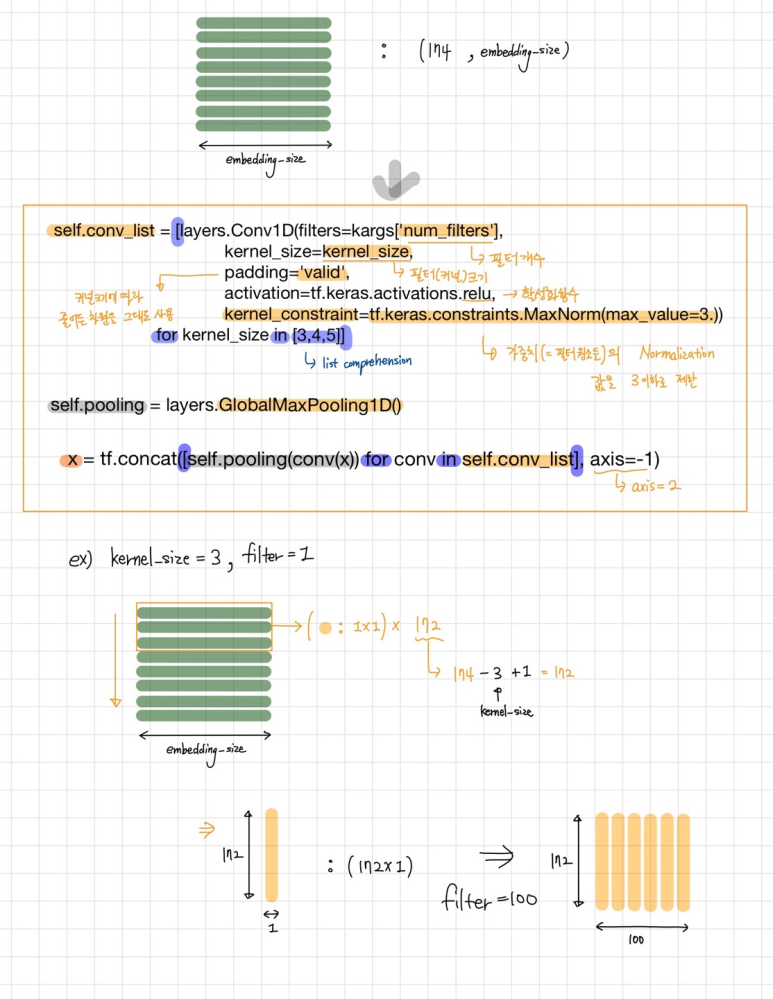 : (174 , embedding-size)
embedding-size
self.conv_list = [layers.Conv1D(filters=kargs['num_filters'],
↳ 필터개수
kernel_size=kernel_size,
↳ 필터(커널)크기
padding='valid',
커널크기에 따라
줄어든 차원을 그대로 사용
activation=tf.keras.activations.relu, → 활성화함수
kernel_constraint=tf.keras.constraints.MaxNorm(max_value=3.))
for kernel_size in [3,4,5]]
↳ list comprehension
↳ 가중치(= 필터원소들)의 Normalization
값을 3이하로 제한
self.pooling = layers.GlobalMaxPooling1D()
x = tf.concat([self.pooling(conv(x)) for conv in self.conv_list], axis=-1)
↳ axis=2
ex) kernel_size = 3 , filter = 1
( : 1x1) x 172
174 - 3 +1 = 172
kernel-size
embedding-size
⇒ 172
: (172x1)
1
⇒
filter=100
172
100